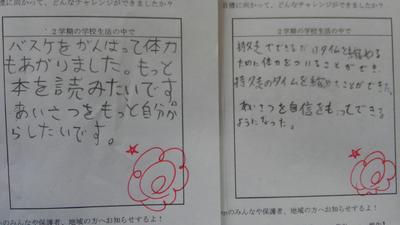 目標に向かって、どんなチャレンジができましたか？
2学期の学校生活の中で
バスケをがんばって体力
もあがりました。もっと
本を読みたいです。
あいさつをもっと自分か
らしたいです。
のみんなや保護者、地域の方へお知らせするよ！
目標に向かって、どんなチャレンジができましたか？
2学期の学校生活の中で
持久走でできるだけタイムを縮める
ために体力をつけることができ
持久走のタイムを縮めることができた。
あいさつを自信をもってできる
ようになった。
のみんなや保護者、地域の方へお知らせするよ！